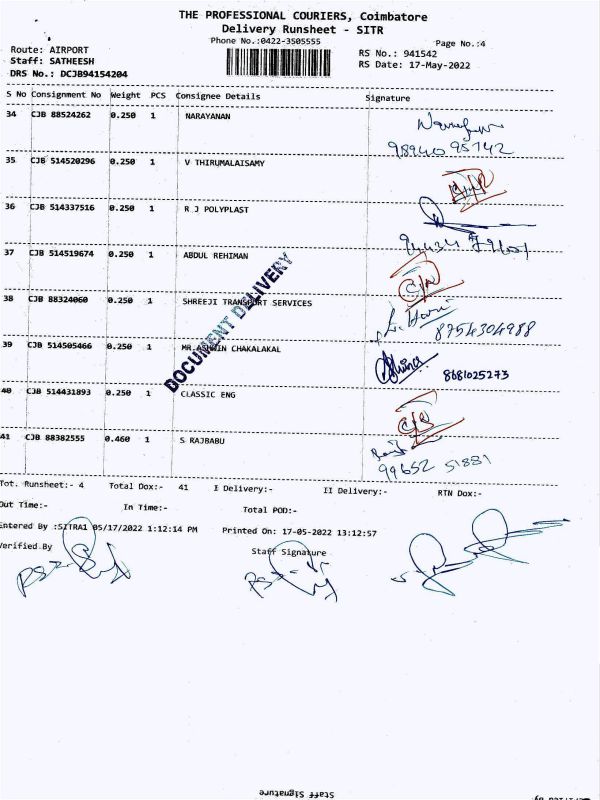 THE PROFESSIONAL COURIERS, Coimbatore
Delivery Runsheet - SITR
Phone No.:0422-3505555
Page No.:4
Route: AIRPORT
Staff: SATHEESH
DRS No.: DCJB94154204
RS No.: 941542
RS Date: 17-May-2022
S No Consignment No Weight PCS Consignee Details Signature
34 CJB 88524262 0.250 1 NARAYANAN
98940 95142
35 CJB 514520296 0.250 1 V THIRUMALAISAMY
36 CJB 514337516 0.250 1 R J POLYPLAST
37 CJB 514519674 0.250 1 ABDUL REHIMAN
38 CJB 88324060 0.250 1 SHREEJI TRANSPORT SERVICES
8754304988
39 CJB 514505466 0.250 1 MR.ASHWIN CHAKALAKAL
8681025273
40 CJB 514431893 0.250 1 CLASSIC ENG
41 CJB 88382555 0.460 1 S RAJBABU
99652 51881
DOCUMENT DELIVERY
Tot. Runsheet:- 4 Total Dox:- 41 I Delivery:- II Delivery:- RTN Dox:-
Out Time:- In Time:- Total POD:-
Entered By :SITRA1 05/17/2022 1:12:14 PM Printed On: 17-05-2022 13:12:57
Verified By Staff Signature
Staff Signature